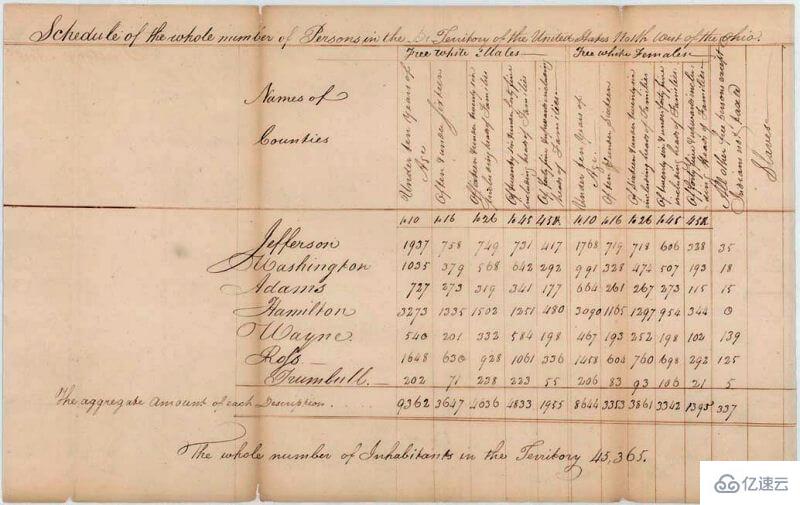 Schedule of the whole number of Persons in the Territory of the United States North West of the Ohio.
Free white Males Free white Females
Names of
Counties
Under ten years of Age
Of ten & under Sixteen
Of Sixteen & under twenty six including heads of Families
Of twenty six & under forty five including heads of Families
Of forty five & upwards including heads of Families
Under ten years of Age
Of ten & under Sixteen
Of Sixteen & under twenty six including heads of Families
Of twenty six & under forty five including heads of Families
Of forty five & upwards including heads of Families
All other free persons except Indians not taxed
Slaves
to 10 to 16 to 26 to 45 45 &c to 10 to 16 to 26 to 45 45 &c
Jefferson 1937 758 749 731 417 1768 719 718 606 328 35
Washington 1035 379 568 642 292 991 328 474 507 193 18
Adams 727 273 319 341 177 664 261 267 273 115 15
Hamilton 3273 1335 1502 1251 480 3090 1165 1297 954 344 0
Wayne 540 201 332 584 198 467 193 252 198 102 139
Ross 1648 630 928 1061 336 1458 604 760 698 292 125
Trumbull 202 71 238 223 55 206 83 93 106 21 5
The aggregate amount of each Description. 9362 3647 4636 4833 1955 8644 3353 3861 3342 1395 337
The whole number of Inhabitants in the Territory 45,365.
亿速云